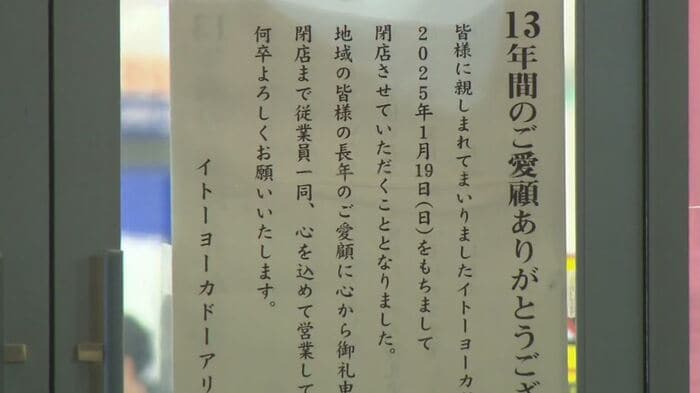 13年間のご愛顧ありがとうござ
皆様に親しまれてまいりましたイトーヨーカ
2025年1月19日(日)をもちまして
閉店させていただくこととなりました。
地域の皆様の長年のご愛顧に心から御礼申
閉店まで従業員一同、心を込めて営業して
何卒よろしくお願いいたします。
イトーヨーカドーアリ